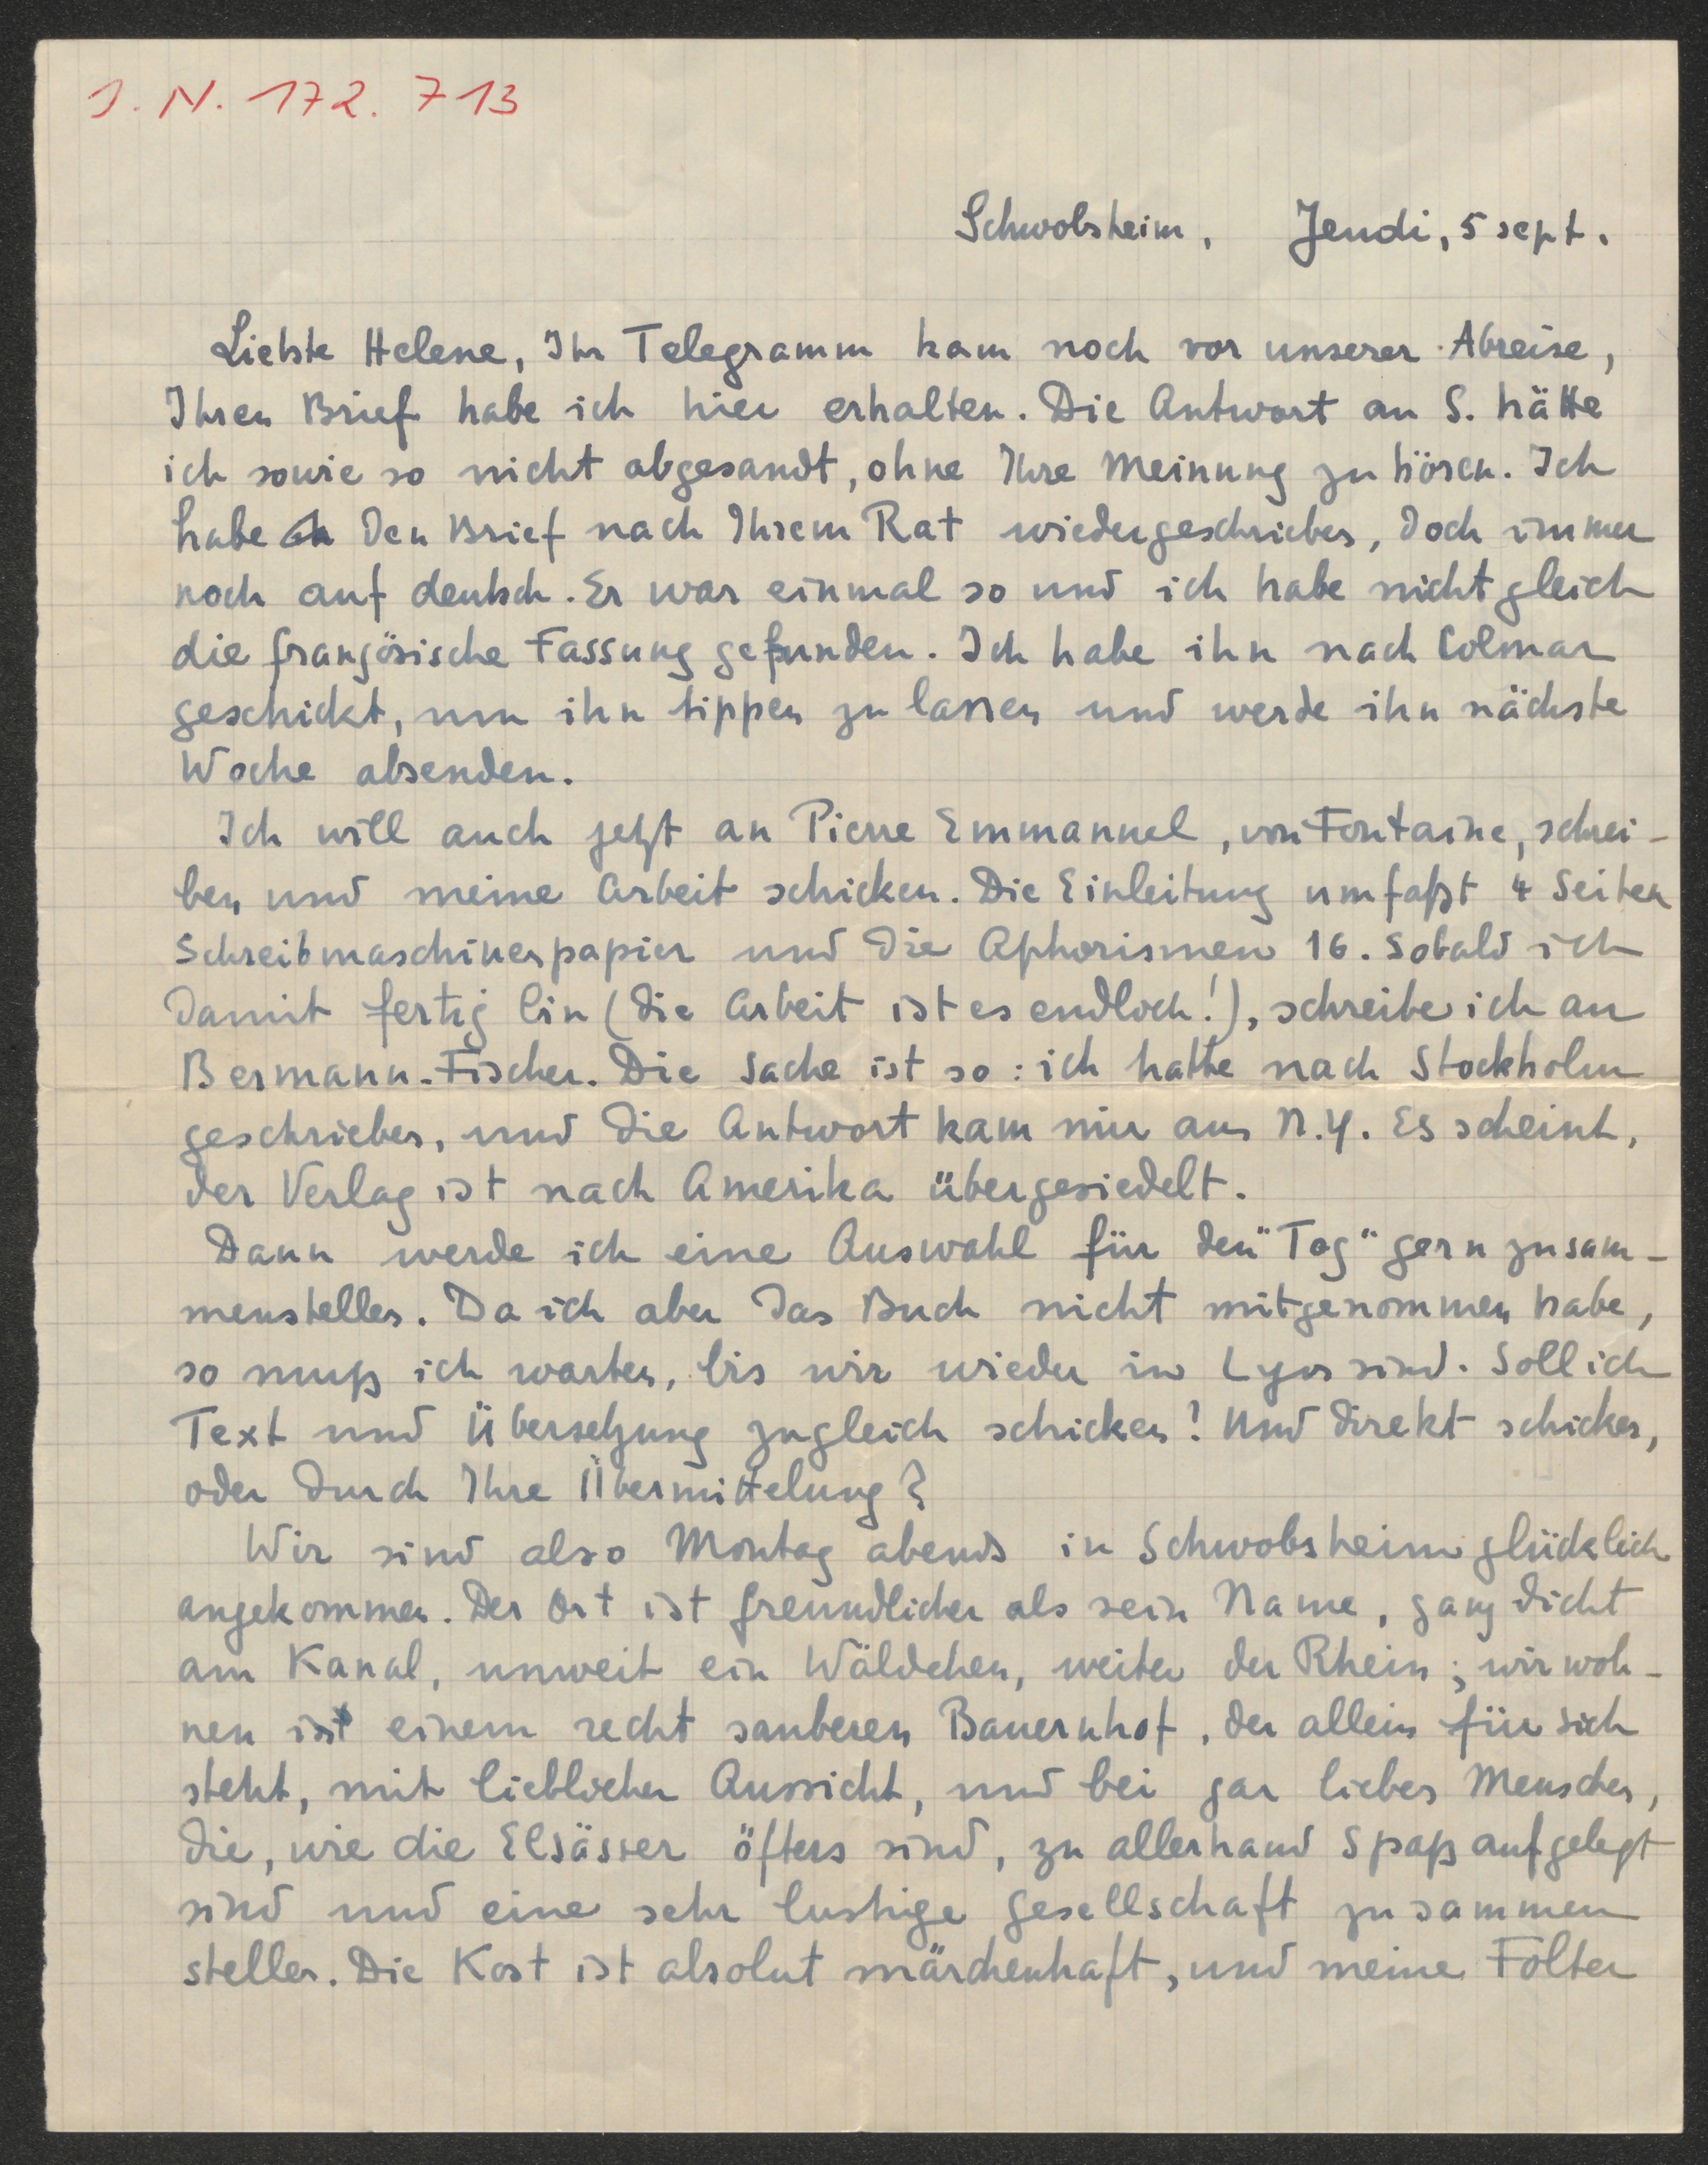 J. N. 172. 713
Schwobsheim, Jeudi, 5 sept.
Liebste Helene, Ihr Telegramm kam noch vor unserer Abreise,
Ihren Brief habe ich hier erhalten. Die Antwort an S. hätte
ich sowie so nicht abgesandt, ohne Ihre Meinung zu hören. Ich
habe den Brief nach Ihrem Rat wiedergeschrieben, doch immer
noch auf deutsch. Er war einmal so und ich habe nicht gleich
die französische Fassung gefunden. Ich habe ihn nach Colmar
geschickt, um ihn tippen zu lassen und werde ihn nächste
Woche absenden.
Ich will auch jetzt an Pierre Emmanuel, von Fontaine, schrei-
ben und meine Arbeit schicken. Die Einleitung umfaßt 4 Seiten
Schreibmaschinenpapier und die Aphorismen 16. Sobald ich
damit fertig bin (die Arbeit ist es endlich!), schreibe ich an
Bermann-Fischer. Die Sache ist so: ich hatte nach Stockholm
geschrieben, und die Antwort kam mir aus N.Y. Es scheint,
der Verlag ist nach Amerika übergesiedelt.
Dann werde ich eine Auswahl für den "Tag" gern zusam-
menstellen. Da ich aber das Buch nicht mitgenommen habe,
so muß ich warten, bis wir wieder in Lyon sind. Soll ich
Text und Übersetzung zugleich schicken? Und direkt schicken,
oder durch Ihre Übermittelung?
Wir sind also Montag abends in Schwobsheim glücklich
angekommen. Der Ort ist freundlicher als sein Name, ganz dicht
am Kanal, unweit ein Wäldchen, weiter der Rhein; wir woh-
nen in einem recht sauberen Bauernhof, der allein für sich
steht, mit lieblicher Aussicht, und bei gar lieben Menschen,
die, wie die Elsässer öfters sind, zu allerhand Spaß aufgelegt
sind und eine sehr lustige Gesellschaft zusammen
stellen. Die Kost ist absolut märchenhaft, und meine Folter